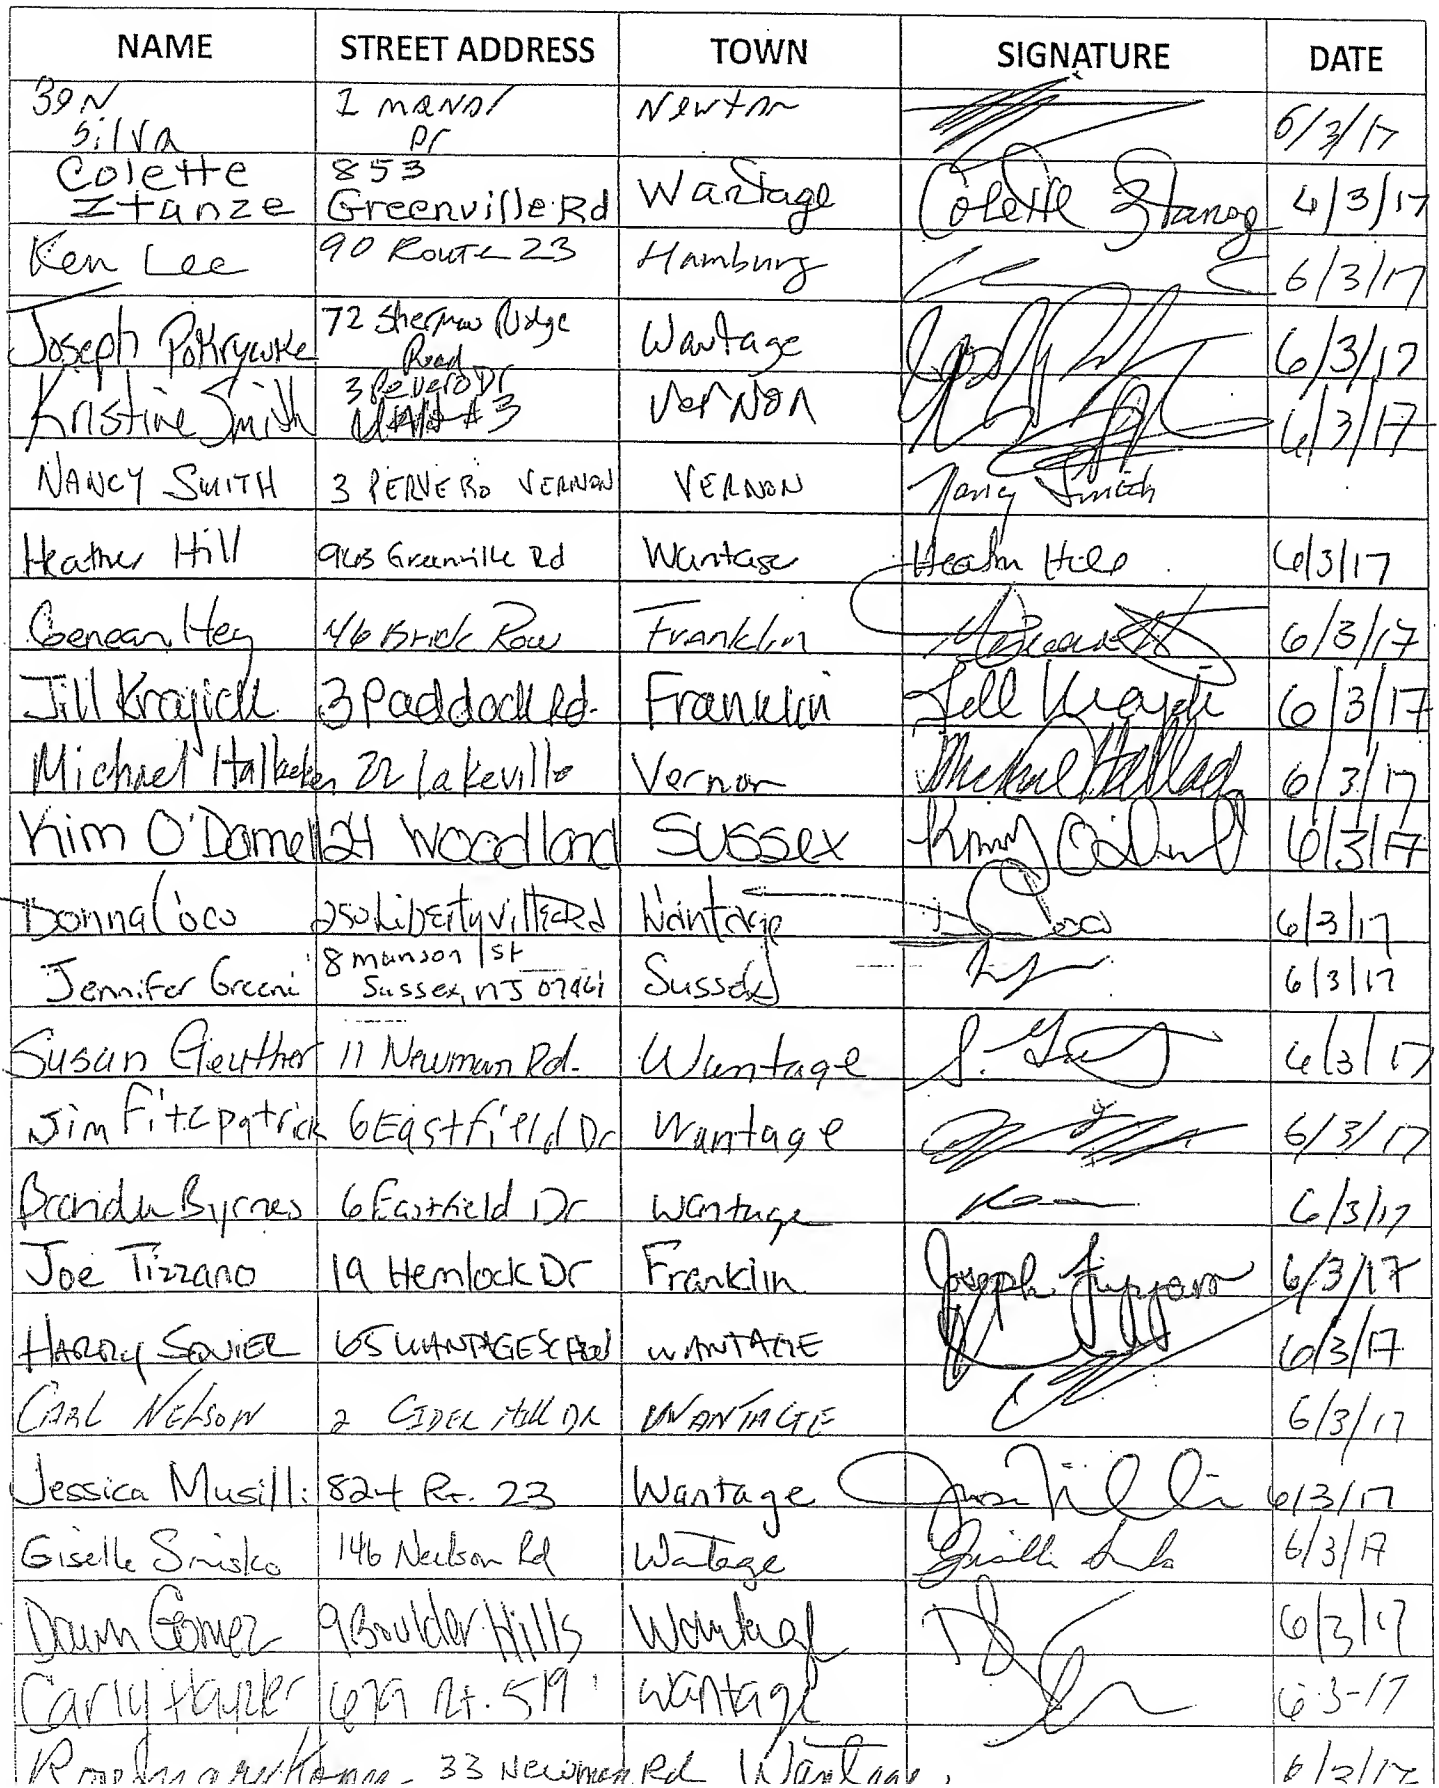 NAME STREET ADDRESS TOWN SIGNATURE DATE
Silva 1 Manor Dr Newton 6/3/17
Colette Stanze 853 Greenville Rd Wantage Colette Stanze 6/3/17
Ken Lee 90 Route 23 Hamburg 6/3/17
Joseph Pokrywke 72 Sherman Ridge Road Wantage 6/3/17
Kristine Smith 3 Pevero Dr Unit #3 Vernon 6/3/17
NANCY SMITH 3 PERVERO VERNON VERNON Nancy Smith
Heather Hill 963 Greenville Rd Wantage Heather Hill 6/3/17
Genean Hey 46 Brick Row Franklin 6/3/17
Jill Krajick 3 Paddock Rd. Franklin Jill Krajick 6/3/17
Michael 22 Lakeville Vernon Michael 6/3/17
Kim O'Donnell 24 Woodland SUSSEX 6/3/17
Donna Coco 250 Libertyville Rd Wantage Coco 6/3/17
Jennifer Greene 8 munson st Sussex, NJ 07461 Sussex 6/3/17
Susan Geuther 11 Newman Rd. Wantage 6/3/17
Jim Fitzpatrick 6 Eastfield Dr Wantage 6/3/17
Byrnes 6 Eastfield Dr Wantage 6/3/17
Joe Tizzano 19 Hemlock Dr Franklin Joseph Tizzano 6/3/17
HARRY SQUIER 65 WANTAGE WANTAGE 6/3/17
CARL NELSON 2 CIDER Hill DR WANTAGE 6/3/17
Jessica Musilli 824 Rt. 23 Wantage 6/3/17
Giselle Smisko 146 Neilson Rd Wantage Giselle 6/3/17
Dawn Gomez 9 Boulder Hills Wantage 6/3/17
Carly 679 Rt. 519 Wantage 6-3-17
33 Newman Rd Wantage 6/3/17